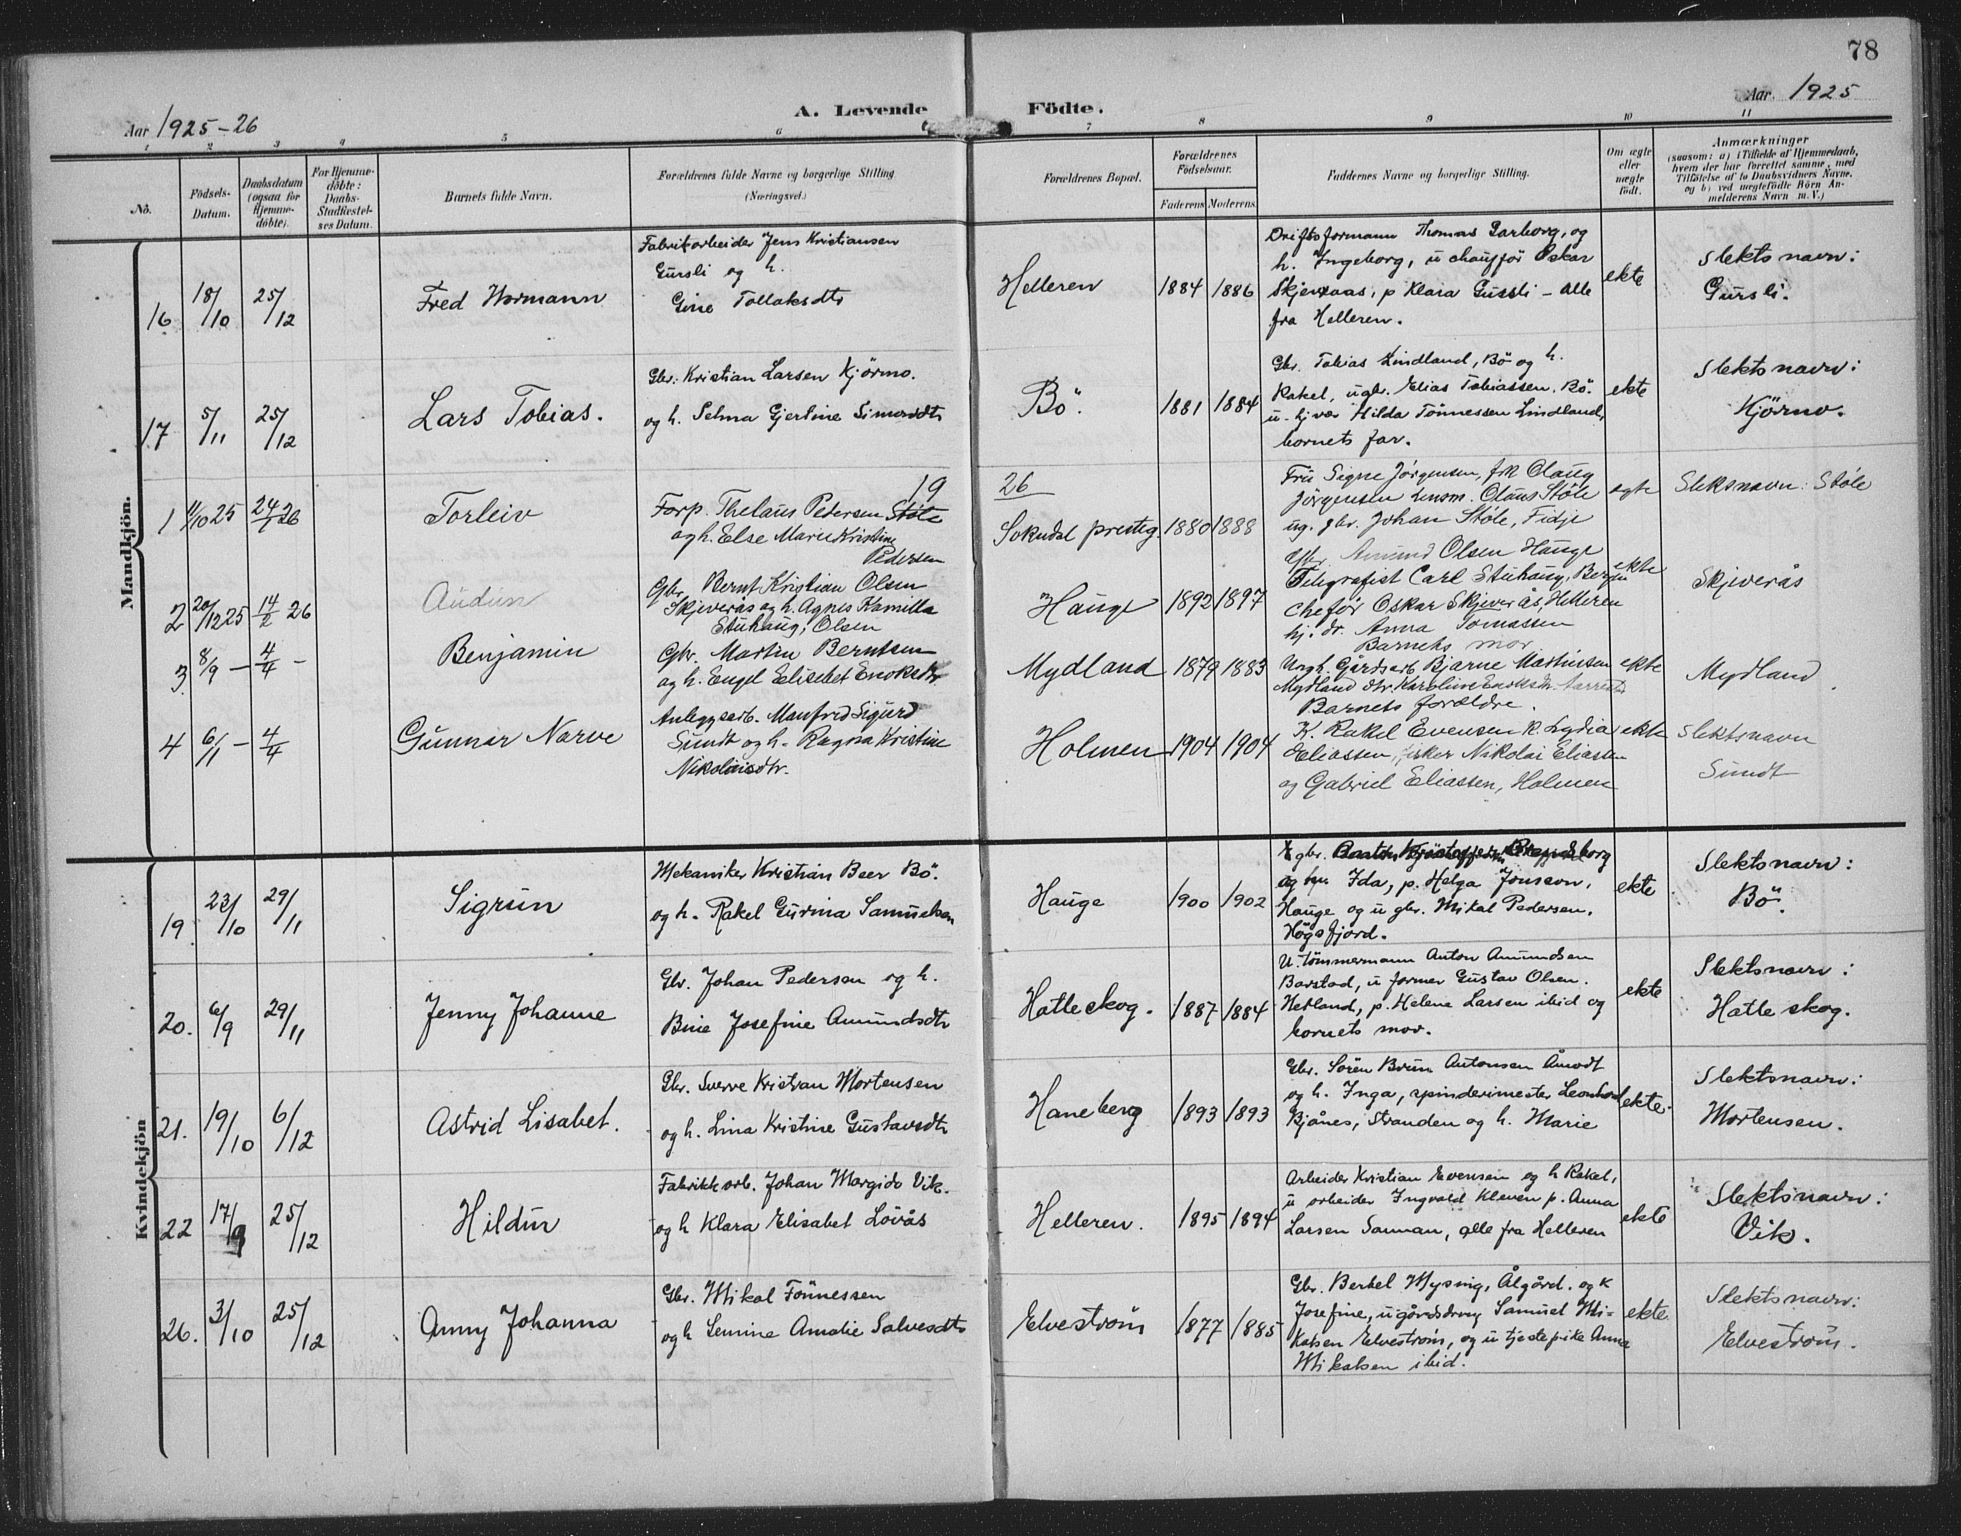 78
Aar 1925-26
A. Levende
Födte.
Aar. 1925
1
2
3
4
5
6
7
8
9
10
11
No.
Födsels-
Datum.
Daabsdatum
(ogsaa for
Hjemme-
döbte).
For Hjemme-
döbte:
Daabs-
Stadfæstel-
ses Datum.
Barnets fulde Navn.
Forældrenes fulde Navne og borgerlige Stilling
(Næringsvei.)
Forældrenes Bopæl.
Forældrenes
Födselsaar.
Faderens
Moderens
Faddernes Navne og borgerlige Stilling.
Om ægte
eller
uægte
födt.
Anmærkninger
(saasom: a) i Tilfælde af Hjemmedaab,
hvem der har forrettet samme, med
Tilföielse af to Daabsvidners Navne,
og b) ved uægtefödte Börn An-
melderens Navn m. V.)
Mandkjön.
16
18/10
25/12
Fred Hormann
Fabrikarbeider Jens Kristiansen
Gursli og h.
Gine Tollaksdtr
Helleren
1884
1886
Driftsformann Thomas Garborg, og
h. Ingeborg, u chauffør Oskar
Skjeveraas, p Klara Gursli - alle
fra Helleren.
ekte
Slektsnavn:
Gursli.
17
5/11
25/12
Lars Tobias.
Gbr. Kristian Larsen Kjörmo.
og h. Selma Gjertine Simonsdtr
Bö.
1881
1884
Gbr. Tobias Lindland, Bö og h.
Rakel, u gbr. Elias Tobiassen. Bö.
u. Hilda Tönnessen Lindland,
barnets far.
ekte
Slektsnavn:
Kjörmo.
19
26
1
11/10 25
24/1 26
Torleiv
Forp. Thelaus Pedersen Støle
og h. Else Marie Kristine
Pedersen
Sokndal presteg.
1880
1888
Fru Signe Jörgensen, frk Olaug
Jörgensen lensm. Olaus Støle
ug. gbr. Johan Støle, Fidje
egte
Sleksnavn: Støle
2
20/12 25
14/2 26
Audun
Gbr. Bernt Kristian Olsen
Skjeverås og h. Agnes Kamilla
Stuhaug, Olsen
Hauge
1892
1897
Gbr. Amund Olsen Hauge
Telegrafist Carl Stuhaug, Bergen
Chefør Oskar Skjeverås, Helleren
hj. dr. Anna Tomassen
Barnets mor
ekte
Skjeverås
3
8/9 -
4/4 -
Benjamin
Gbr. Martin Berntsen
og h. Engel Elisebet Enoksdtr.
Mydland
1879
1883
Ungk. Gårdsarb Bjarne Martinsen
Mydland dtr. Karoline Enoksdtr
Barnets forældre.
ekte
Mydland
4
6/1 -
4/4
Gunnar Narve
Anleggsarb. Manfred Sigurd
Sundt og h. Ragna Kristine
Nikolaisdtr.
Holmen
1904
1904
K. Rakel Evensen k. Lydia
Eliassen, fisker Nikolai Eliassen
og Gabriel Eliassen, Holmen
ekte
Slektsnavn
Sundt
Kvindekjön
19
23/10
29/11
Sigrun
Mekaniker Kristian Beer Bö.
og h. Rakel Gurina Samuelsen
Hauge
1900
1902
gbr.
Ida, p. Helga Jonsson,
Hauge og u gbr. Mikal Pedersen.
Högsfjord.
ekte
Slektsnavn:
Bö.
20.
6/9
29/11
Jenny Johanne
Gbr. Johan Pedersen og h.
Bine Josefine Amundsdtr
Hatleskog.
1887
1884
U. tömmermann Anton Amundsen
Barstad, u former Gustav Olsen.
Hetland, p. Helene Larsen ibid og
barnets mor.
ekte
Slektsnavn:
Hatleskog.
21.
19/10
6/12
Astrid Lisabet.
Gbr. Sverre Kristian Mortensen
og h. Lina Kristine Gustavsdtr
Haneberg
1893
1893
Gbr. Sören Brun Antonsen Åmodt
og h. Inga, spinderimester Leonhard
Bjånes, Stranden og h. Marie
ekte.
Slektsnavn:
Mortensen.
22
17/9
25/12
Hildur
Fabrikkarb. Johan Margido Vik.
og h Klara Elisabet Lövås
Helleren.
1895
1894
Arbeider Kristian Evensen og h Rakel,
u arbeider Ingvald Kleven p. Anna
Larsen Sanman, alle fra Helleren
ekte
Slektsnavn:
Vik.
26.
3/10
25/12
Anny Johanna
Gbr. Mikal Tönnessen
og h Semine Amalie Salvesdtr
Elveström
1877
1885
Gbr. Bertel Mysing, Ålgård. og k
Josefine, u gårdsdreng Samuel Mi-
kalsen Elveström, og u tjestepike Anna
Mikalsen ibid.
ekte
Slektsnavn:
Elveström.